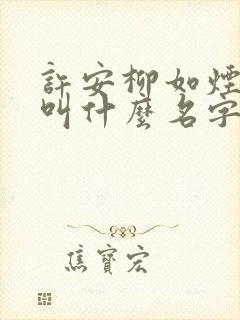 許安柳如煙
叫什麼名字
焦寶宏